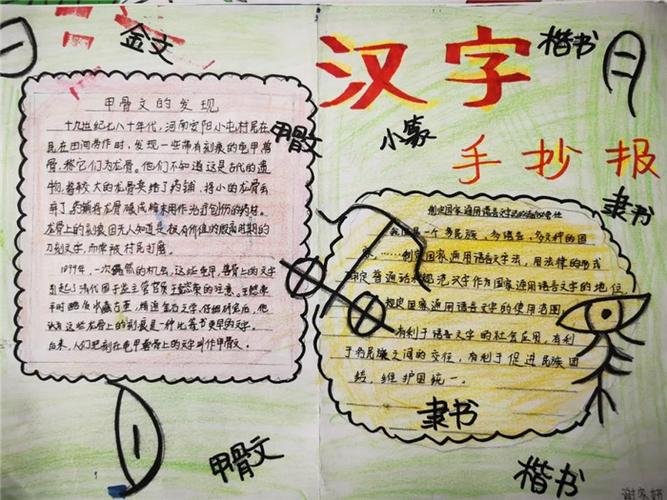 金文
汉字
楷书
甲骨文
小篆
手抄报
隶书
甲骨文的发现
十九世纪七八十年代,河南安阳小屯村民在
在田间劳作时,发现一些带有刻痕的龟甲兽
骨,称它们为龙骨。他们不知道这是古代的遗
物,着较大的龙骨卖给了药铺,将小的龙骨
龙骨上的刻痕但无人知道是极有价值的殷商时期的
刻文字,而常被村民
1899年,一次偶然的机会,这些龟甲、兽骨上的文字
引起了清代国子监主管官员王懿荣的注意。
这些龙骨上的刻莫是一种比篆书更早的文字。
后来,人们把刻在龟甲兽骨上的文字叫作甲骨文。
制定国家通用语言文字法的
我国是一个多民族,多语言,多文种的国
家……制定国家通用语言文字法,用法律的形式
确定普通话和规范汉字作为国家通用语言文字的地位,
规定国家通用语言文字的使用范围
有利于语言文字的社会应用,有利
于各民族之间的交往,有利于促进民族团
结,维护国统一。
隶书
甲骨文
楷书